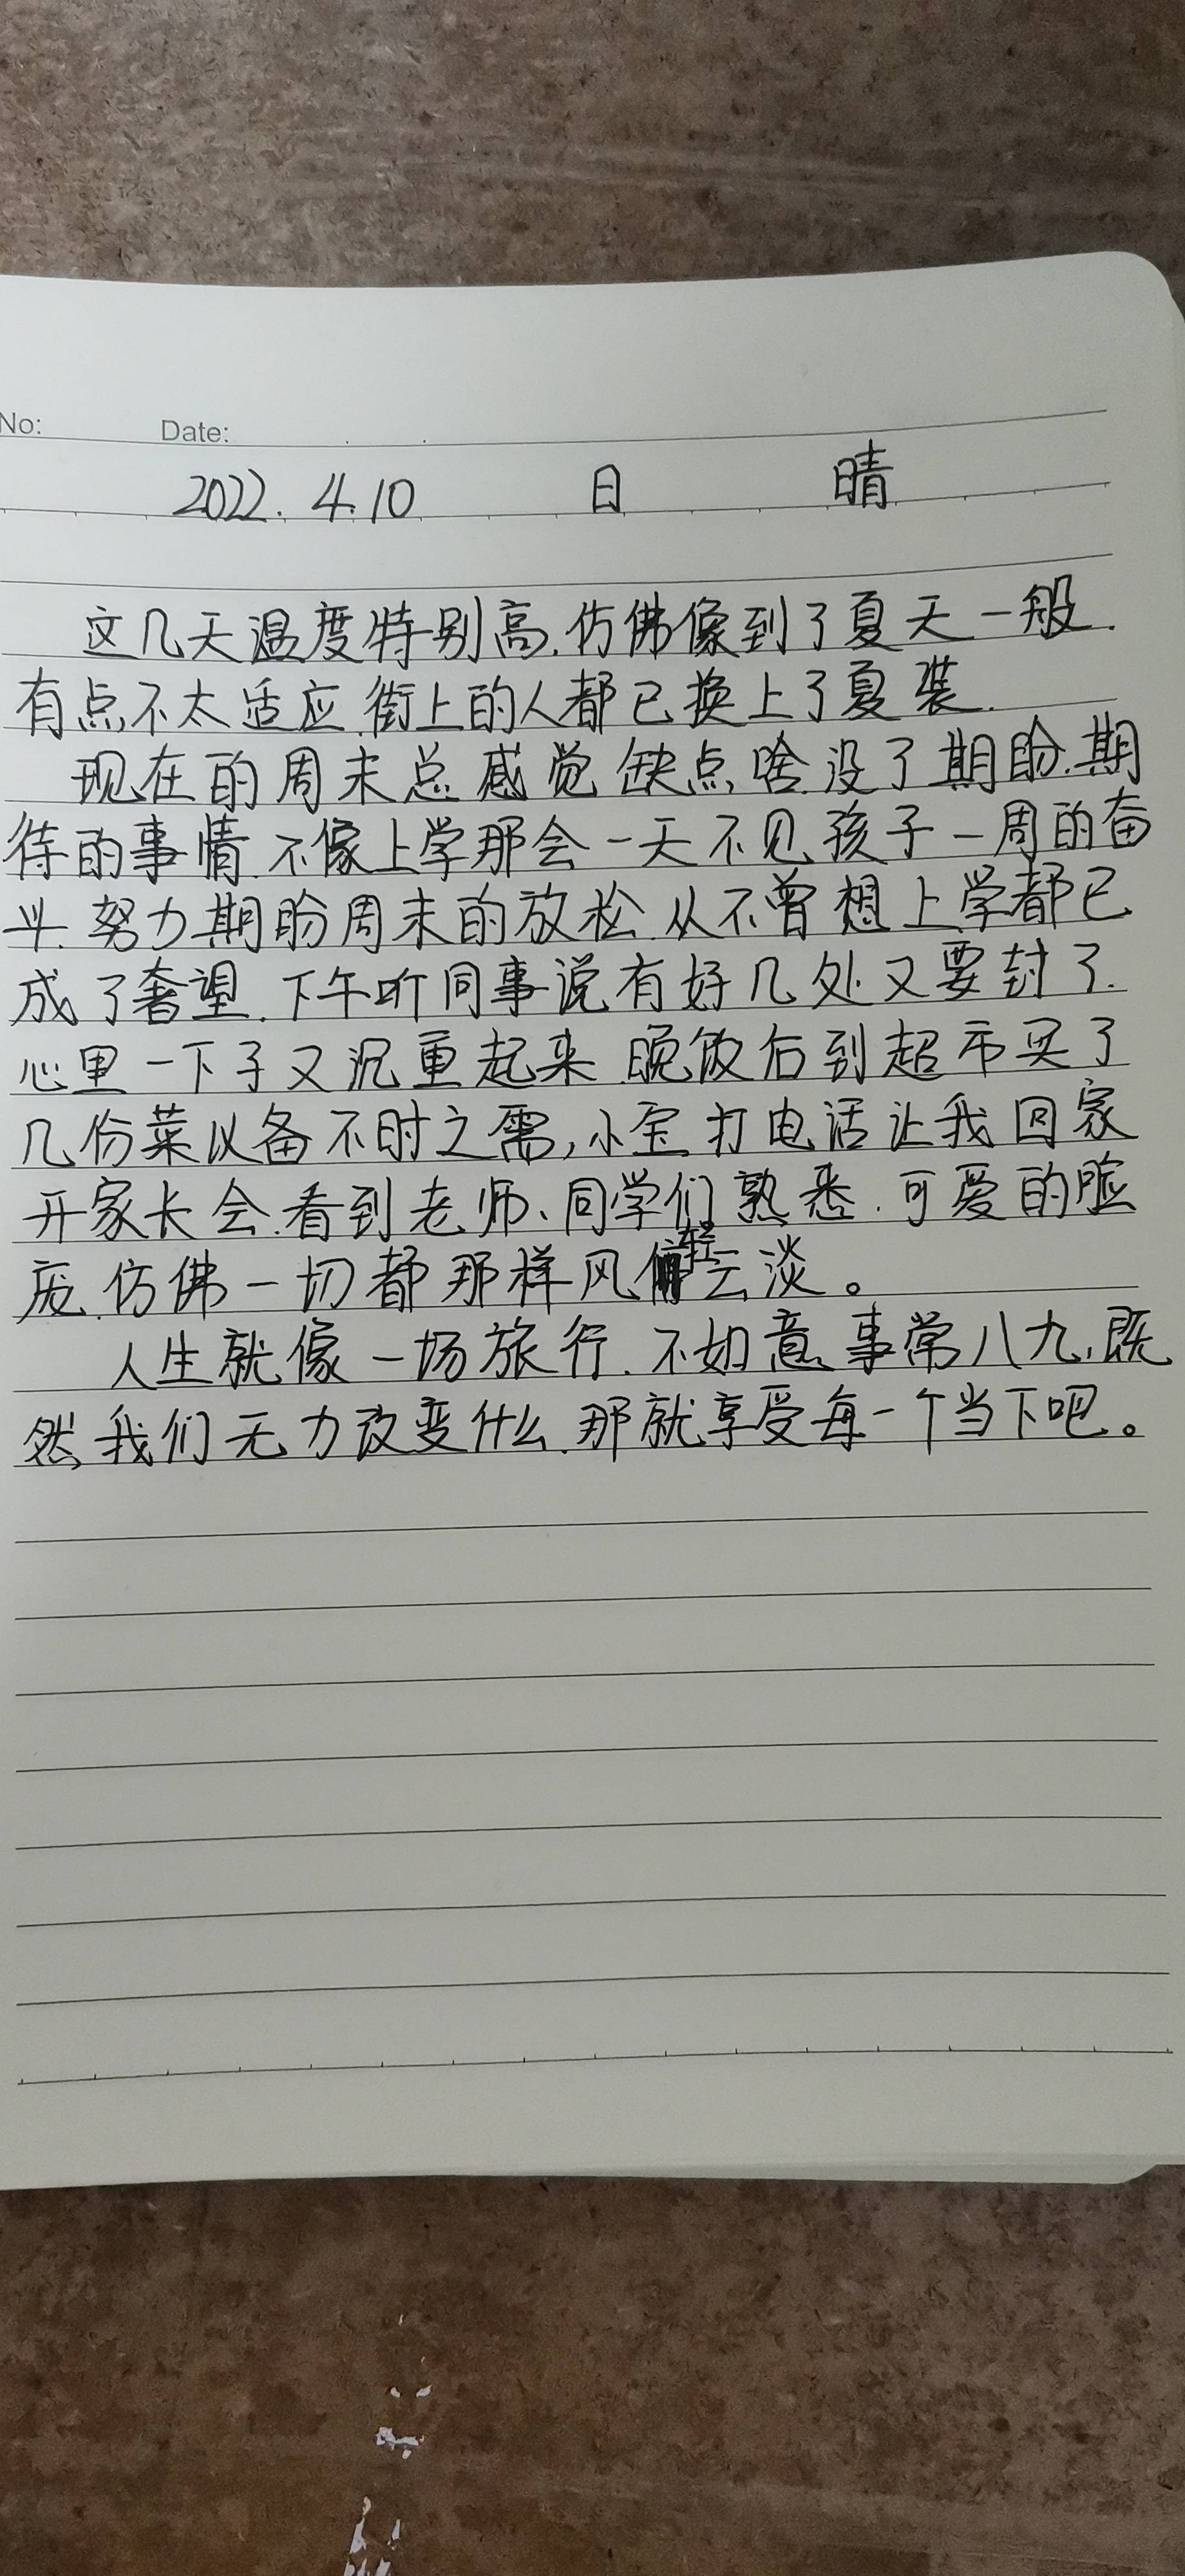 No: Date:
2022.4.10 日 晴
这几天温度特别高.仿佛像到了夏天一般.
有点不太适应.街上的人都已换上了夏装.
现在的周末总感觉缺点啥.没了期盼.期
待的事情.不像上学那会一天不见孩子一周的奋
斗.努力期盼周末的放松.从不曾想上学都已
成了奢望.下午听同事说有好几处又要封了.
心里一下子又沉重起来.晚饭后到超市买了
几份菜以备不时之需,小宝打电话让我回家
开家长会.看到老师、同学们熟悉.可爱的脸
庞.仿佛一切都那样风轻云淡。
人生就像一场旅行.不如意事常八九,既
然我们无力改变什么.那就享受每一个当下吧。